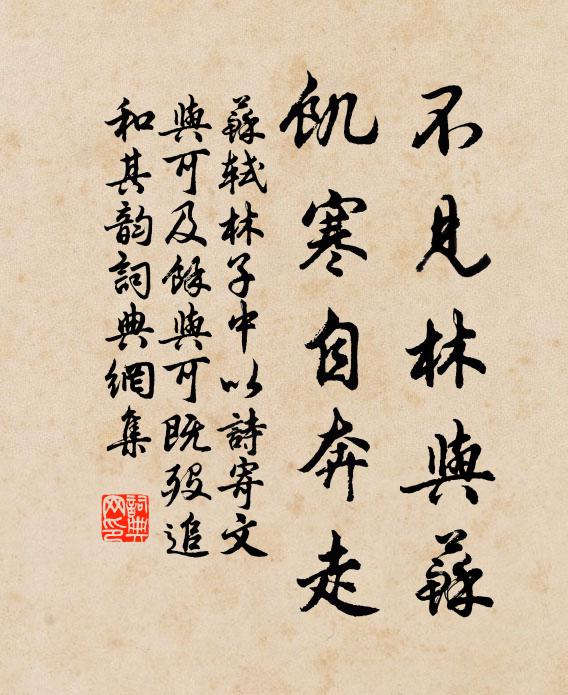 不見林與蘇
飢寒自奔走
蘇軾林子中以詩寄文
與可及餘與可既歿追
和其韵詞典網集
詞典網印